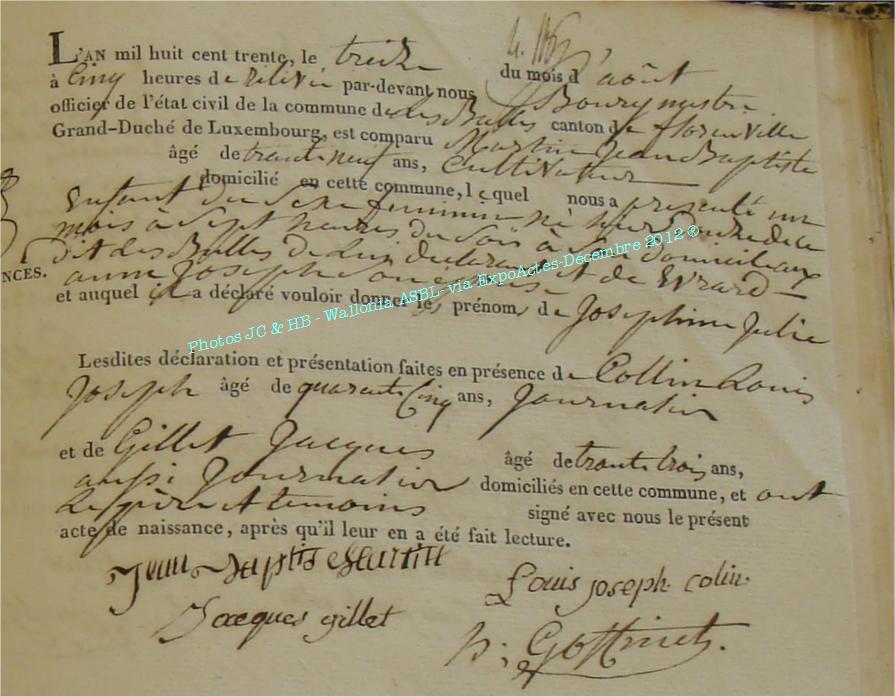 L'AN mil huit cent trente, le treize du mois d'août
à Cinq heures de relevée par-devant nous Bourgmestre
officier de l'état civil de la commune de des Bulles canton de florenville
Grand-Duché de Luxembourg, est comparu Martin Jean Baptiste
âgé de trante neuf ans, Cultivateur
domicilié en cette commune, lequel nous a presenté un
enfant du sexe feminin né hier douze de ce
mois à Sept heures du Soir à Son domicile aux
dit des Bulles de Lui declarant et de Evrard
NCES.
anne Joseph Son epouse
et auquel il a déclaré vouloir donner les prénoms de Josephine Julie
Photos JC & HB - Wallonia ASBL- via ExpoActes-Decembre 2012 ®
Lesdites déclaration et présentation faites en présence de Collin Louis
Joseph âgé de quarante Cinq ans, Journalier
et de Gillet Jacques âgé de trante trois ans,
aussi Journalier domiciliés en cette commune, et ont
Le père et temoins signé avec nous le présent
acte de naissance, après qu'il leur en a été fait lecture.
Jean Baptis Martin
Louis joseph colin
Jacques gillet
Goffinet